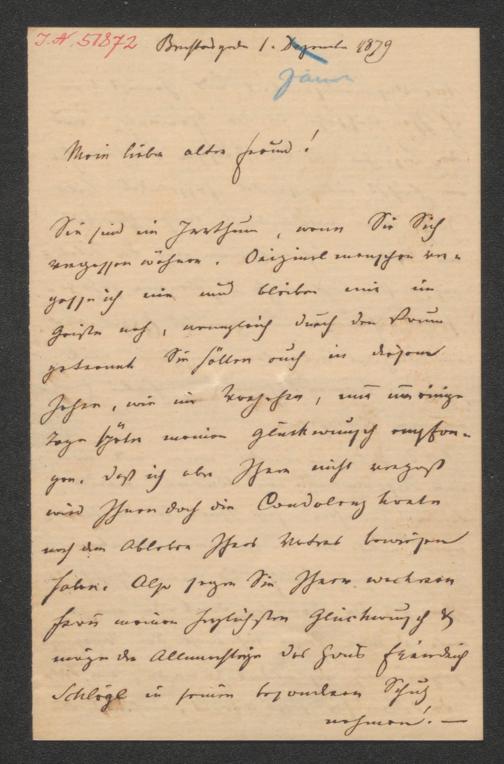 I. N. 51872
1. Dezember 1879
Jänner
Mein lieber alter Freund!
Sie sind im Irrthum, wenn Sie Sich
vergessen wähnen. Originalmenschen ver-
gesse ich nie und bleiben mir im
Geiste nah, wenngleich durch den Raum
getrennt. Sie sollen auch in diesem
Jahre, wie im Vorjahre, nur um einige
Tage später meinen Glückwunsch empfan-
gen. Daß ich aber Ihrer nicht vergaß
wird Ihnen doch die Condolenzkarte
nach dem Ableben Ihres Vaters bewiesen
haben. Also sagen Sie Ihrer wackeren
Frau meinen herzlichsten Glückwunsch &
möge der Allmächtige das Haus Friedrich
Schlögl in seinen besonderen Schutz
nehmen! —